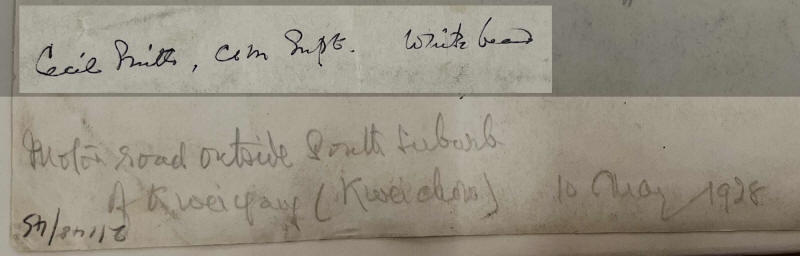 Cecil Smith, CIM Supt. White beard
Motor road outside South Suburb
of Kweiyang (Kweichow) 10 May 1928